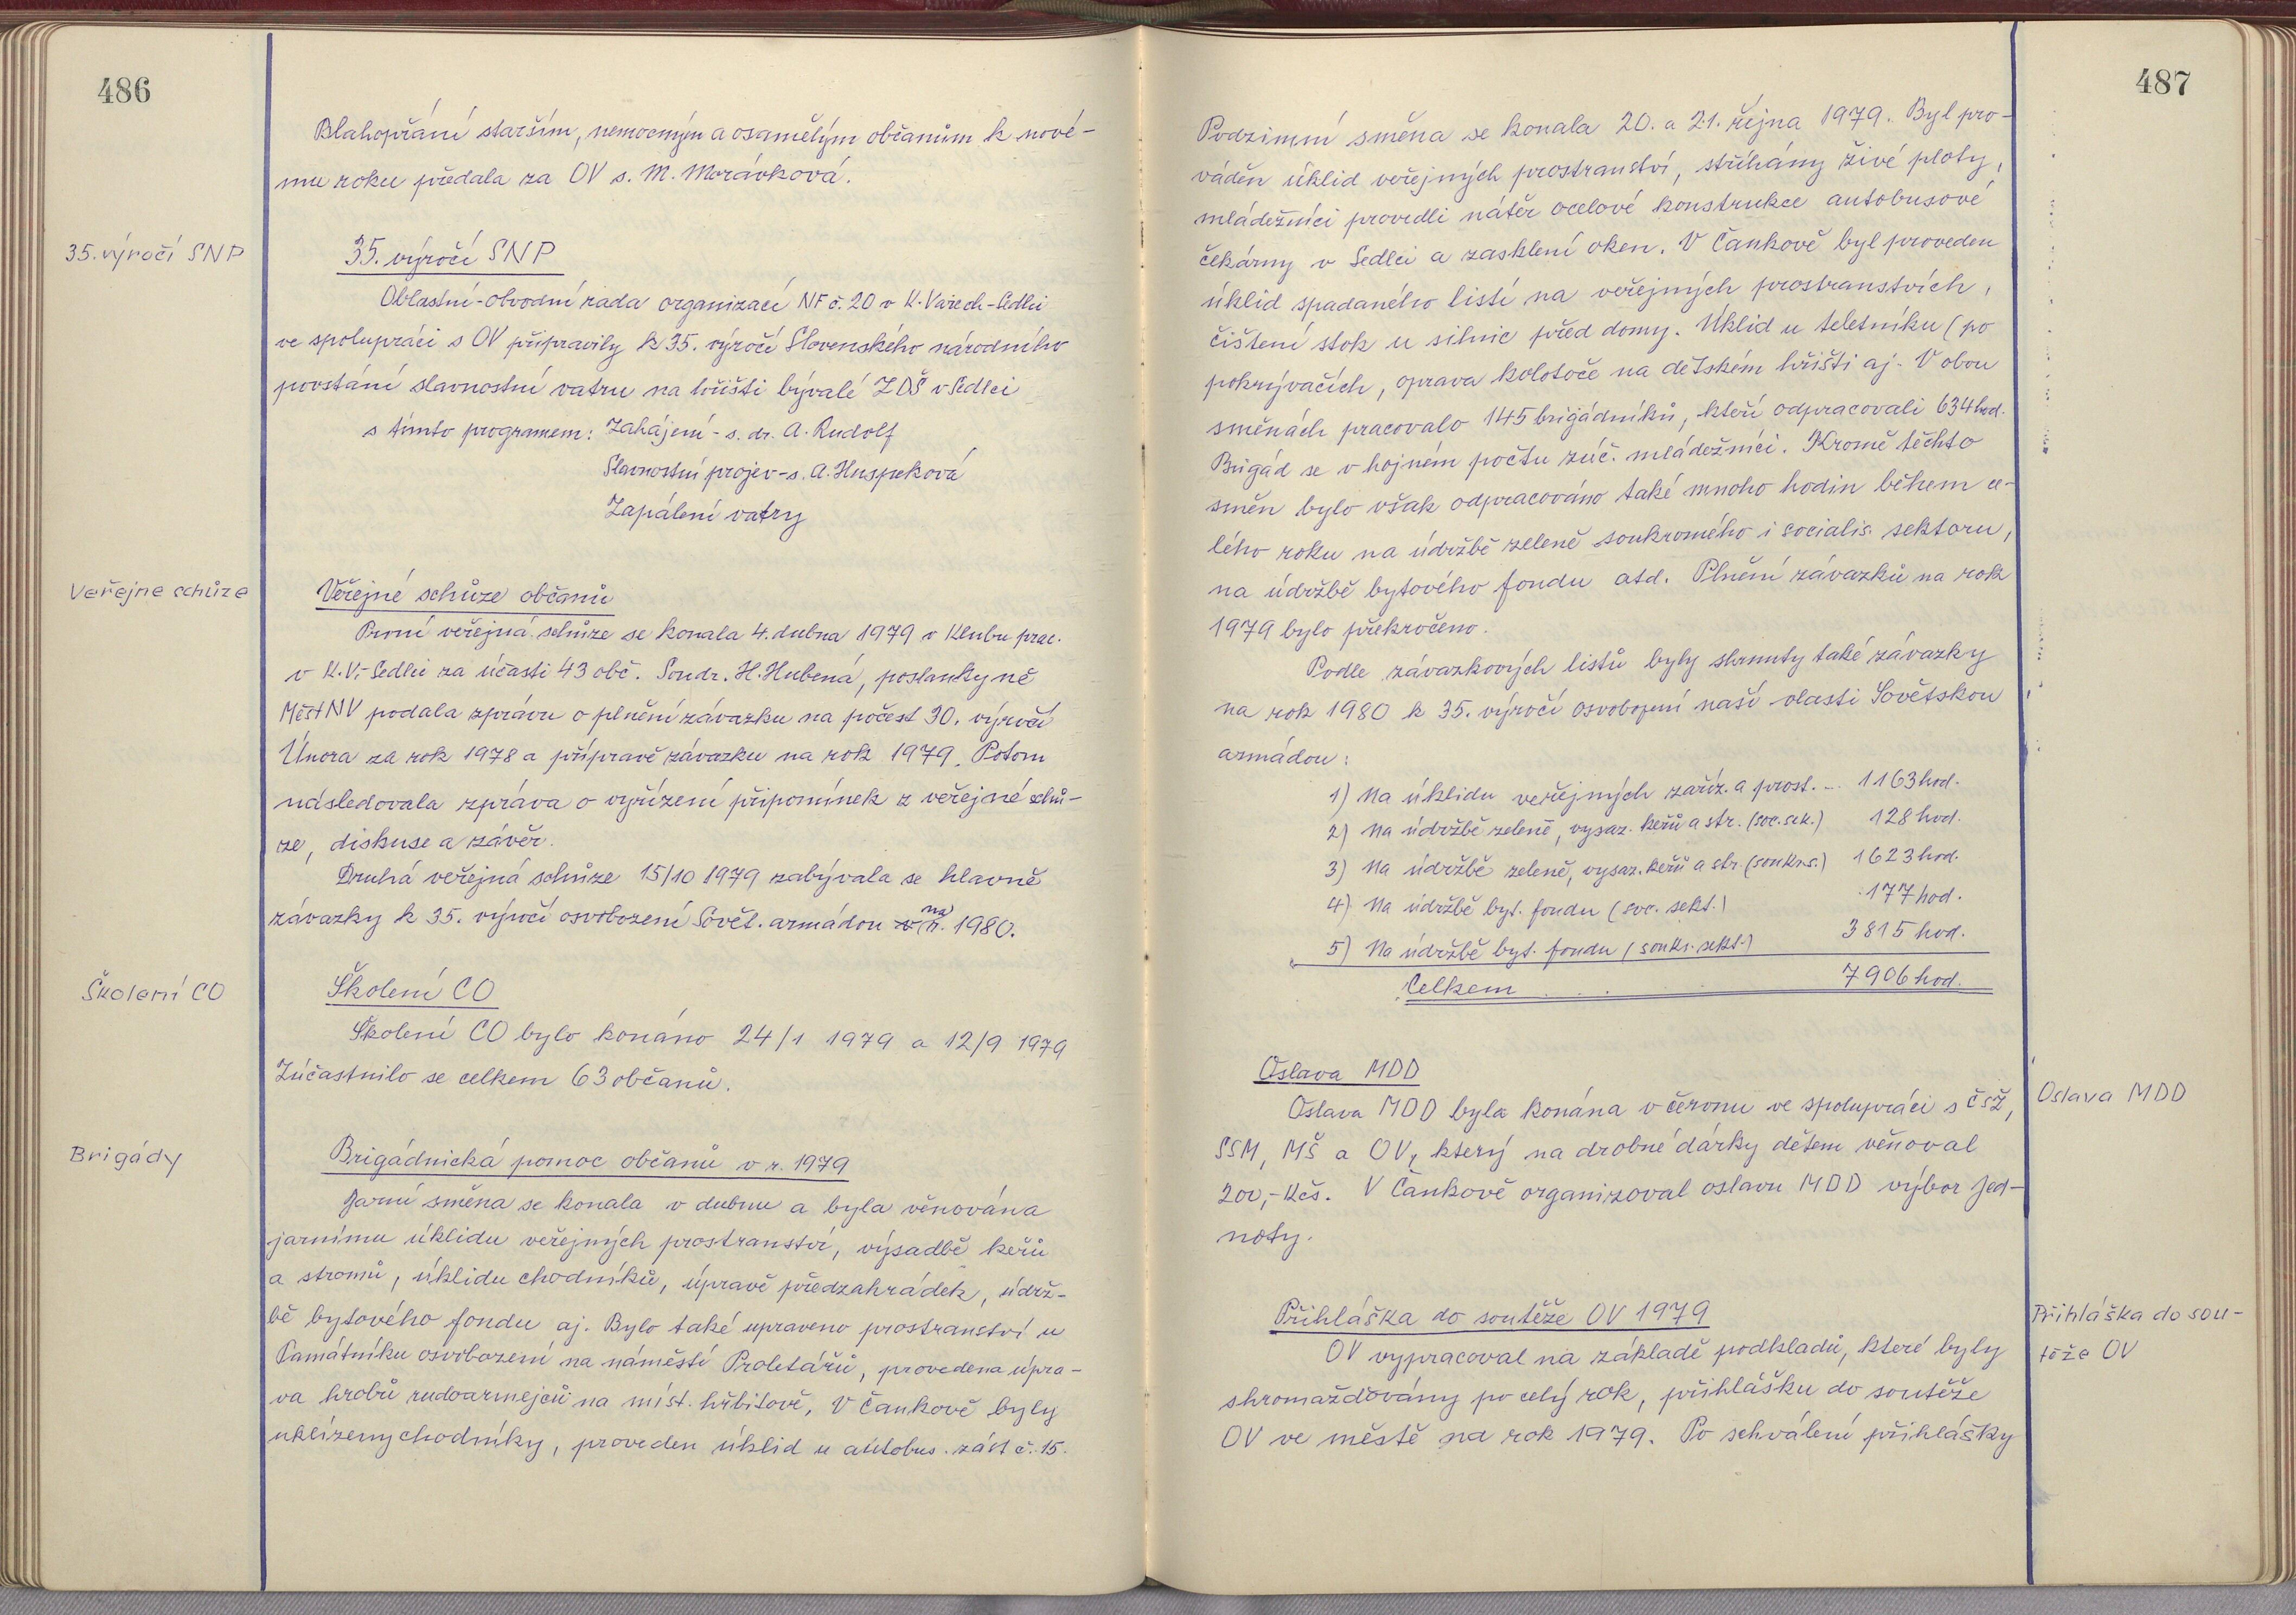 486
Blahopřání starším, nemocným a osamělým občanům k nové-
mu roku předala za OV s. M. Morávková.
35. výročí SNP
35. výročí SNP
Oblastní-obvodní rada organizací NF č. 20 v K. Varech-Sedlci
ve spolupráci s OV připravily k 35. výročí Slovenského národního
povstání slavnostní vatru na hřišti bývalé ZDŠ v Sedlci
s tímto programem: Zahájení - s. dr. A. Rudolf
Slavnostní projev - s. A. Huspeková
Zapálení vatry
Veřejne schůze
Veřejné schůze občanů
První veřejná schůze se konala 4. dubna 1979 v Klubu prac.
v K.V.-Sedlci za účasti 43 obč. Soudr. H. Hubená, poslankyně
MěstNV podala zprávu o plnění závazku na počest 30. výročí
Února za rok 1978 a přípravě závazku na rok 1979. Potom
následovala zpráva o vyřízení připomínek z veřejné schů-
ze, diskuse a závěr.
Druhá veřejná schůze 15/10 1979 zabývala se hlavně
závazky k 35. výročí osvobození Sovět. armádou na r. 1980.
Školení CO
Školení CO
Školení CO bylo konáno 24/1 1979 a 12/9 1979
Zúčastnilo se celkem 63 občanů.
Brigády
Brigádnická pomoc občanů v r. 1979
Jarní směna se konala v dubnu a byla věnována
jarnímu úklidu veřejných prostranství, výsadbě keřů
a stromů, úklidu chodníků, úpravě předzahrádek, údrž-
bě bytového fondu aj. Bylo také upraveno prostranství u
Památníku osvobození na náměstí Proletářů, provedena úpra-
va hrobů rudoarmejců na míst. hřbitově, V Čankově byly
uklízeny chodníky, proveden úklid u autobus. zást č. 15.
487
Podzimní směna se konala 20. a 21. října 1979. Byl pro-
váděn úklid veřejných prostranství, stříhány živé ploty,
mládežníci provedli nátěr ocelové konstrukce autobusové
čekárny v Sedlci a zasklení oken. V Čankově byl proveden
úklid spadaného listí na veřejných prostranstvích,
čištení stok u silnic před domy. Úklid u teletníku (po
pokrývačích, oprava kolotoče na dětském hřišti aj. V obou
směnách pracovalo 145 brigádníků, kteří odpracovali 634 hod.
Brigád se v hojném počtu zúč. mládežníci. Kromě těchto
směn bylo však odpracováno také mnoho hodin během ce-
lého roku na údržbě zeleně soukromého i socialis. sektoru,
na údržbě bytového fondu atd. Plnění závazků na rok
1979 bylo překročeno.
Podle závazkových listů byly shrnuty také závazky
na rok 1980 k 35. výročí osvobození naší vlasti Sovětskou
armádou:
1) Na úklidu veřejných zaříz. a prost. .. 1163 hod.
2) Na údržbě zeleně, vysaz. keřů a str. (soc. sek.) 128 hod.
3) Na údržbě zeleně, vysaz. keřů a str. (soukr.s.) 1623 hod.
4) Na údržbě byt. fondu (soc. sekt.) 177 hod.
5) Na údržbě byt. fondu (soukr. sekt.) 3815 hod.
Celkem . . . 7906 hod.
Oslava MDD
Oslava MDD
Oslava MDD byla konána v červnu ve spolupráci s ČSŽ,
SSM, MŠ a OV, který na drobné dárky dětem věnoval
200,- Kčs. V Čankově organizoval oslavu MDD výbor Jed-
noty.
Přihláška do sou-
těže OV
Přihláška do soutěže OV 1979
OV vypracoval na základě podkladů, které byly
shromažďovány po celý rok, přihlášku do soutěže
OV ve městě na rok 1979. Po schválení přihlášky